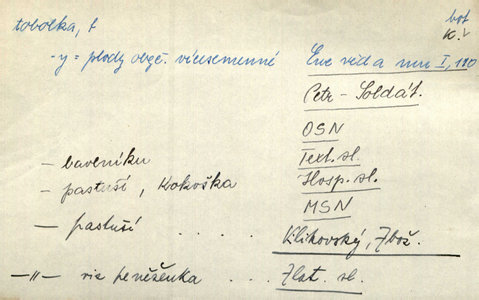 tobolka, f
bot
-y = plody obyč. vícesemenné Enc věd a um I, 180
Petr - Soldát.
OSN
— bavlníku Text. sl.
— pastuší, Kokoška Hosp. sl.
MSN
— pastuší . . . . Klikovský, Zbož.
—"— viz peněženka . . . Zlat. sl.